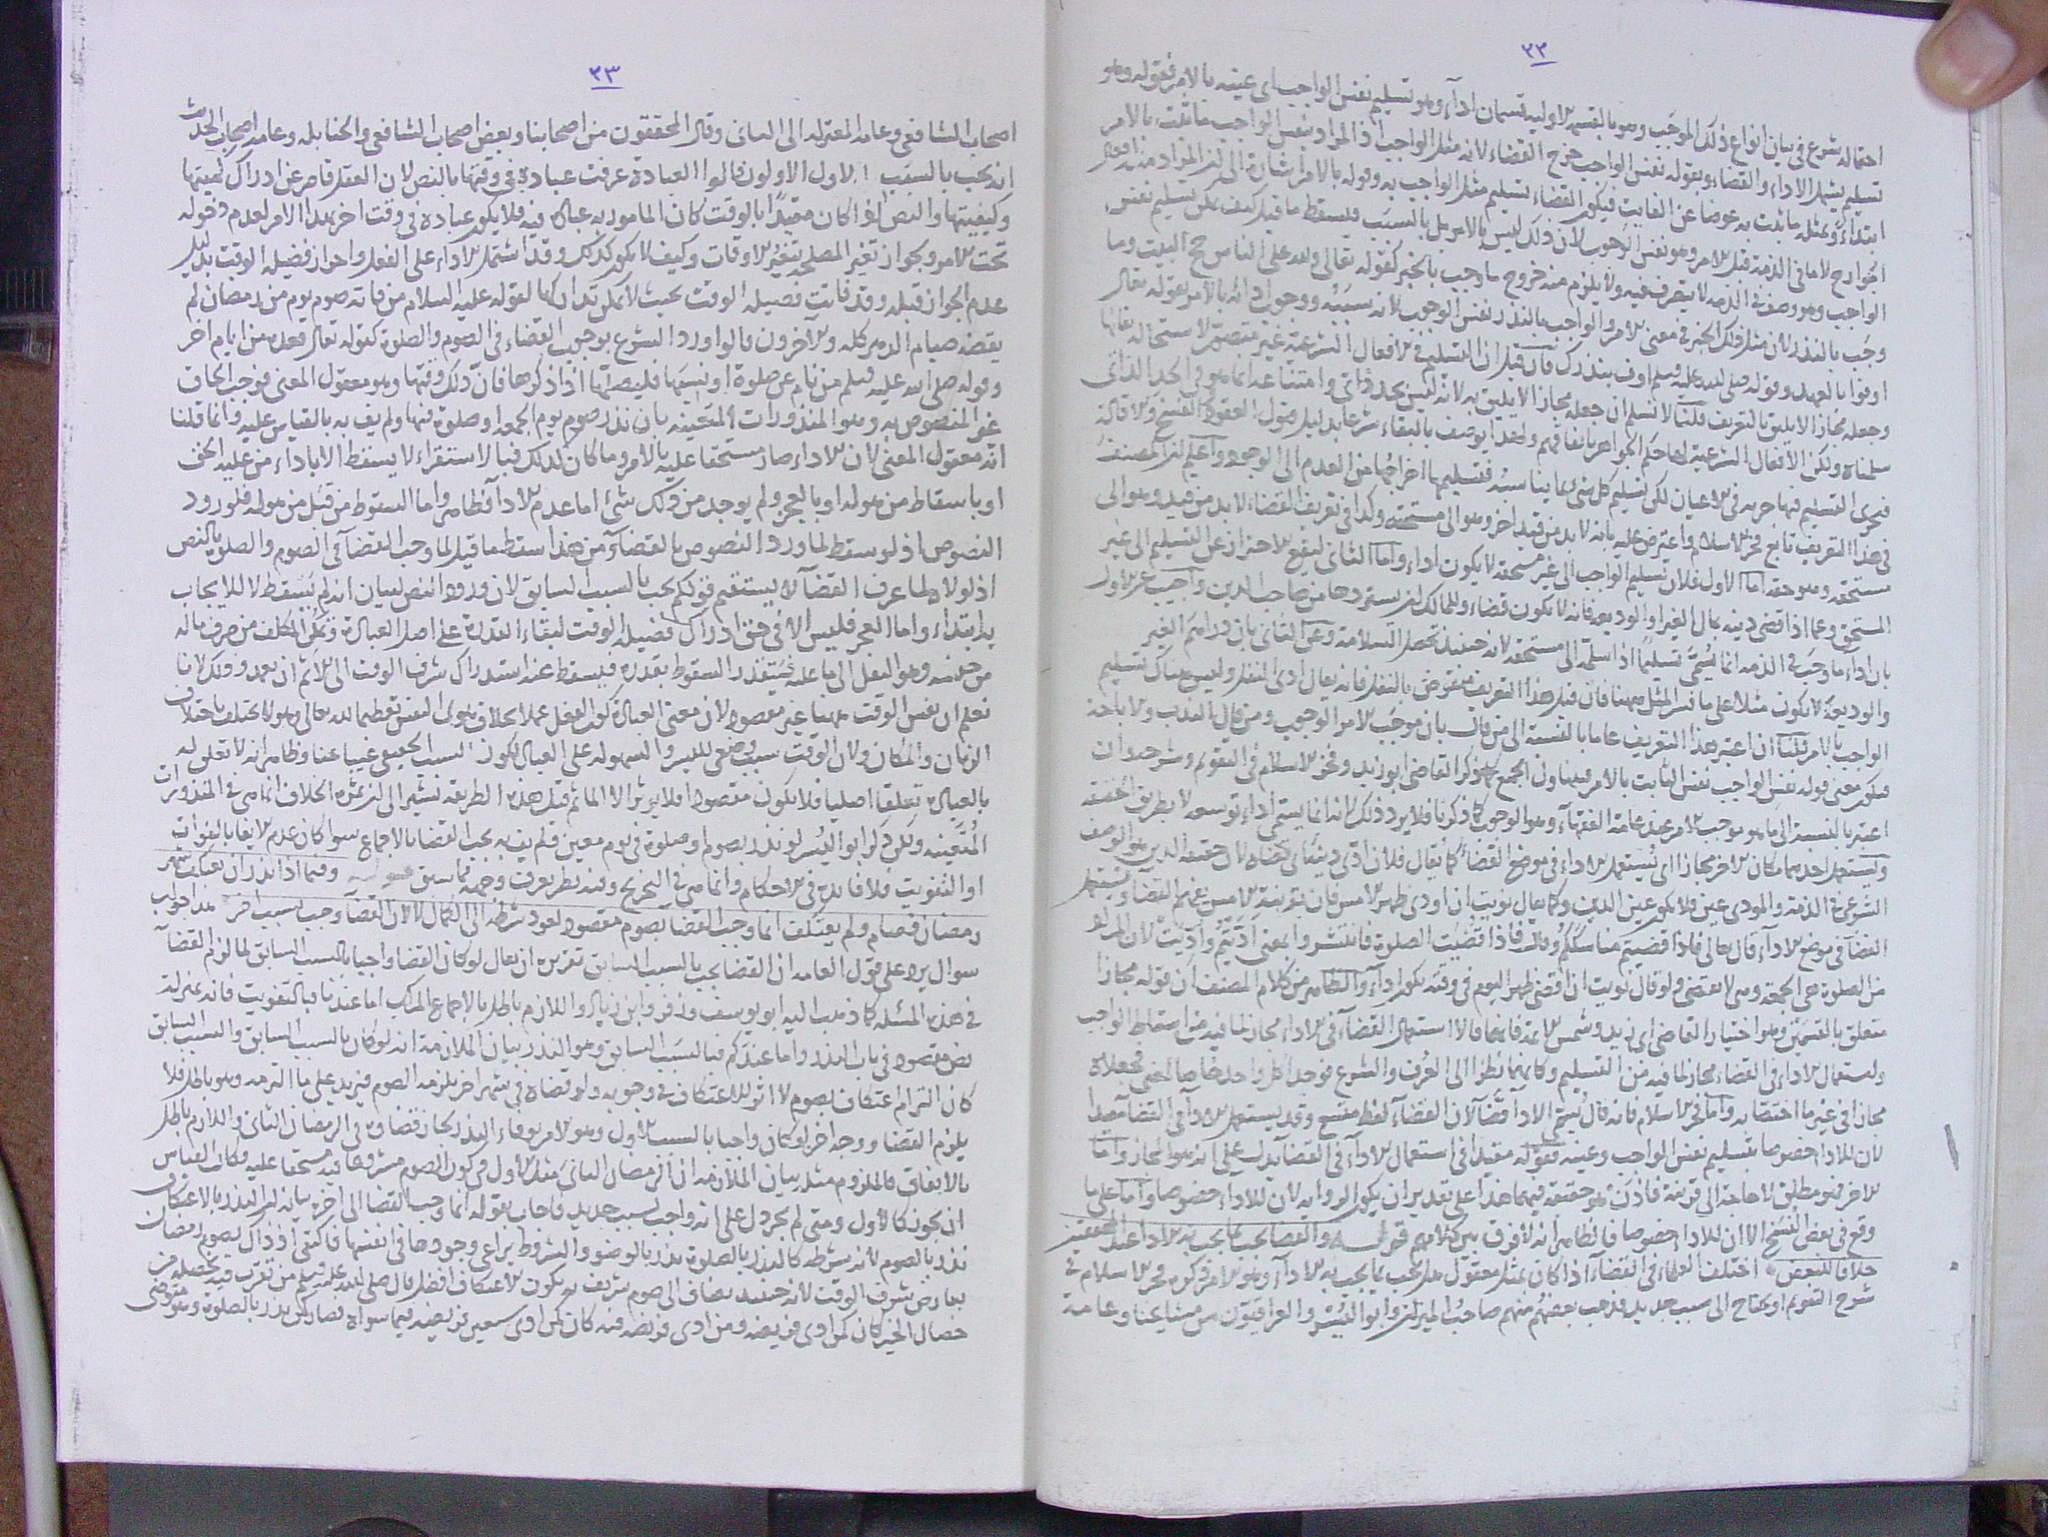 ٢٢
احتماله شرع في بيان انواع ذلك الموجب وهو بالقسمة الاولية قسمان اداء وهو تسليم نفس الواجب اي عينه بالامر فقوله وهو
تسليم يشمل الاداء والقضاء وبقوله نفس الواجب خرج القضاء لانه مثل الواجب اذ المراد بنفس الواجب ما ثبت بالامر
ابتداء وبمثله ما ثبت به عوضا عن الفايت فيكون القضاء تسليم مثل الواجب به وقوله بالامر اشارة الى ان المراد منه افعال
الجوارح لا ما في الذمة قبل الامر وهو نفس الوجوب لان ذلك ليس بالامر بل بالسبب فيسقط ما قيل كيف يمكن تسليم نفس
الواجب وهو وصف في الذمة لا يتصرف فيه ولا يلزم منه خروج ما وجب بالخبر كقوله تعالى ولله على الناس حج البيت وما
وجب بالنذر لان مثل ذلك الخبر في معنى الامر والواجب بالنذر نفس الوجوب لانه سببه ووجوب ادائه بالامر بقوله تعالى
اوفوا بالعهد وقوله صلى الله عليه وسلم اوف بنذرك فان قيل ان التسليم في الافعال الشرعية غير متصور لاستحالة بقائها
وجعله مجازا لا يليق بالتعريف قلنا لا نسلم ان جعله مجازا لا يليق به لانه ليس بحد ذاتي وامتناعه انما هو في الحد الذاتي
سلمناه ولكن الافعال الشرعية لها حكم الجواهر باتفاقهم ولهذا يوصف بالبقاء شرعا بدليل قبول العقود الفسخ والاقالة
فجرى التسليم فيها جريه في الاعيان لكن تسليم كل شئ بما يناسبه فتسليمها اخراجها من العدم الى الوجود واعلم ان المصنف
في هذا التعريف تابع فخر الاسلام واعترض عليه بانه لا بد من قيد اخر وهو الى مستحقه وكذا في تعريف القضاء لا بد من قيد وهو الى
مستحقه وهو حقه اما الاول فلان تسليم الواجب الى غير مستحقه لا يكون اداء واما الثاني ليقع الاحتراز عن التسليم الى غير
المستحق وعما اذا قضى دينه بمال الغير او الوديعة فانه لا يكون قضاء وللمالك ان يستردها من صاحب الدين واجيب عن الاول
بان اداء ما وجب في الذمة انما يسمى تسليما اذا سلمه الى مستحقه لانه حينئذ تحصل السلامة وعن الثاني بان دراهم الغير
والوديعة لا يكون مثلا على ما فسر المثل ههنا فان قيل هذا التعريف منقوض بالنفل فانه يقال ادى النفل وليس هناك تسليم
الواجب بالامر قلنا ان اعتبر هذا التعريف عاما بالنسبة الى من قال بان موجب الامر الوجوب ومن قال بالندب والاباحة
فيكون معنى قوله نفس الواجب نفس الثابت بالامر فيتناول الجميع كما ذكر القاضي ابو زيد وفخر الاسلام في التقويم وشرحه وان
اعتبر بالنسبة الى ما هو موجب الامر عند عامة الفقهاء وهو الوجوب كما ذكرنا فلا يرد ذلك لانه انما يسمى اداء توسعه لا بطريق الحقيقة
ويستعمل احدهما مكان الاخر مجازا اي يستعمل الاداء في موضع القضاء كما يقال فلان ادى دينه اي قضاه لان حقيقة الدين هو الوصف
الشرعي في الذمة والمودى عين فلا يكون عين الدين وكما يقال نويت ان اودي ظهر الامس فان بقرينة الامس يفهم القضا ويستعمل
القضا في موضع الاداء قال تعالى فاذا قضيتم مناسككم وقال فاذا قضيت الصلوة فانتشروا بالمعنى اديتم واديت لان المراد
من الصلوة هي الجمعة وهي لا تقضى ولو قال نويت ان اقضي ظهر اليوم في وقته يكون اداء والظاهر من كلام المصنف ان قوله مجازا
متعلق بالقسمين وهو اختيار القاضي ابي زيد وشمس الائمة فانهما قالا استعمال القضاء في الاداء مجاز لما فيه من اسقاط الواجب
واستعمال الاداء في القضاء مجاز لما فيه من التسليم وكانهما نظرا الى العرف والشرع فوجدا كل واحد خاصا بمعنى فجعلاه
مجازا في غير ما اختص به واما فخر الاسلام فانه قال يسمى الاداء قضاء لان القضاء لفظ متسع وقد يستعمل الاداء في القضاء مقيدا
لان للاداء خصوصا بتسليم نفس الواجب وعينه فقوله مقيدا في استعمال الاداء في القضا يدل على انه هو المجاز واما
الاخر فهو مطلق لا حاجة الى قرينة فاذن هو حقيقة فيهما هذا على تقدير ان يكون الرواية لان للاداء خصوصا واما على ما
وقع في بعض النسخ الا ان للاداء خصوصا فالظاهر انه لا فرق بين كلامهم قوله والقضا يجب بما يجب به الاداء عند المحققين
خلافا للبعض اختلف العلماء في القضاء اذا كان بمثل معقول هل يجب بما يجب به الاداء وهو الامر ذكره فخر الاسلام في
شرح التقويم او يحتاج الى سبب جديد فذهب بعضهم منهم صاحب الميزان وابو اليسر والعراقيون من مشايخنا وعامة
٢٣
اصحاب الشافعي وعامة المعتزلة الى الثاني وقال المحققون من اصحابنا وبعض اصحاب الشافعي والحنابلة وعامة اصحاب الحديث
انه يجب بالسبب الاول الاولون قالوا العبادة عرفت عبادة في وقتها بالنص لان العقل قاصر عن ادراك كميتها
وكيفيتها والنص اذا كان مقيدا بالوقت كان المامور به عبادة فيه فلا يكون عبادة في وقت اخر بهذا الامر لعدم دخوله
تحت الامر ويجوز تغير المصلحة بتغير الاوقات وكيف لا يكون كذلك وقد اشتمل الاداء على الفعل واحراز فضيلة الوقت بدليل
عدم الجواز قبله وقد فاتت فضيلة الوقت بحيث لا يمكن تداركها لقوله عليه السلام من فاته صوم يوم من رمضان لم
يقضه صيام الدهر كله والاخرون قالوا ورد الشرع بوجوب القضاء في الصوم والصلوة كقوله تعالى فعدة من ايام اخر
وقوله صلى الله عليه وسلم من نام عن صلوة او نسيها فليصلها اذا ذكرها فان ذلك وقتها وهو معقول المعنى فوجب الحاق
غير المنصوص به وهو المنذورات المعينة بان نذر صوم يوم الجمعة او صلوة فيها ولم يف به بالقياس عليه وانما قلنا
انه معقول المعنى لان الاداء صار مستحقا عليه بالامر وما كان كذلك فبالاستقراء لا يسقط الا باداء من عليه الحق
او باسقاط من هو له او بالعجز ولم يوجد من ذلك شئ اما عدم الاداء فظاهر واما السقوط من قبل من هو له فلورود
النصوص اذ لو سقط لما ورد النصوص بالقضاء ومن هذا سقط ما قيل لما وجب القضاء في الصوم والصلوة بالنص
اذ لولاه لما عرف القضاء لا يستقيم قولكم يجب بالسبب السابق لان ورود النص لبيان انه لم يسقط لا للايجاب
به ابتداء واما العجز فليس الا في حق ادراك فضيلة الوقت لبقاء القدرة على اصل العبادة وتمكن المكلف من صرف ما له
من جنسه وهو النفل الى ما عليه فيتقدر السقوط بقدره فيسقط عنه استدراك شرف الوقت الى الاثم ان تعمد وذلك لانا
نعلم ان نفس الوقت ههنا غير مقصود لان معنى العبادة كون الفعل عملا بخلاف هوى النفس تعظيما لله تعالى وهو لا يختلف باختلاف
الزمان والمكان ولان الوقت سبب وضعي لليسر والسهولة على العباد لكون السبب الحقيقي غيبا عنا وظاهر انه لا تعلق له
بالعبادة تعلقا اصليا فلا يكون مقصودا فلا يوثر الا المأثم قيل هذه الطريقة تشير الى ان ثمرة الخلاف انما هي في المنذورات
المتعينة ولكن ذكر ابو اليسر لو نذر بصوم او صلوة في يوم معين فلم يف به يجب القضا بالاجماع سوا كان عدم الايفا بالفوات
او التفويت فلا فائدة في الاحكام وانما هي في التخريج وفيه نظر يعرف وجهه مما سبق قوله وفيما اذا نذر ان يعتكف شهر
رمضان فصام ولم يعتكف انما وجب القضا بصوم مقصود لعود شرطه الى الكمال لا لان القضا وجب بسبب اخر هذا جواب
سوال يرد على قول العامة ان القضا يجب بالسبب السابق تقريره ان يقال لو كان القضا واجبا بالسبب السابق لما لزم القضاء
في هذه المسئلة كما ذهب اليه ابو يوسف وزفر وابن زياد واللازم باطل بالاجماع المركب اما عندنا فبالتفويت فانه بمنزلة
نص مقصود في باب النذر واما عندكم فبالسبب السابق وهو النذر بيان الملازمة انه لو كان بالسبب السابق والسبب السابق
كان التزام اعتكاف بصوم لا اثر للاعتكاف في وجوبه ولو قضاه في شهر اخر يلزمه الصوم فيزيد على ما التزمه وهو باطل فلا
يلزم القضا ووجه اخر لو كان واجبا بالسبب الاول وهو الامر بوفاء النذر لجاز قضاؤه في الرمضان الثاني واللازم باطل
بالاتفاق فالملزوم مثله بيان الملازمة ان الرمضان الثاني مثل الاول في كون الصوم مشروعا فيه مستحقا عليه فكان القياس
ان يكون كالاول ومتى لم يجز دل على انه واجب بسبب جديد فاجاب بقوله انما وجب القضا الى اخره بيانه ان النذر بالاعتكاف
نذر بالصوم لانه شرطه كالنذر بالصلوة نذر بالوضوء والشروط يراعى وجودها في انفسها فاكتفى اذ ذاك بصوم رمضان
بعارض شرف الوقت لانه حينئذ يضاف الى صوم شريف به يكون الاعتكاف افضل قال صلى الله عليه وسلم من تقرب فيه بخصلة من
خصال الخير كان كمن ادى فريضة ومن ادى فريضة فيه كان كمن ادى سبعين فريضة فيما سواه فصار كمن نذر بالصلوة وهو متوضئ